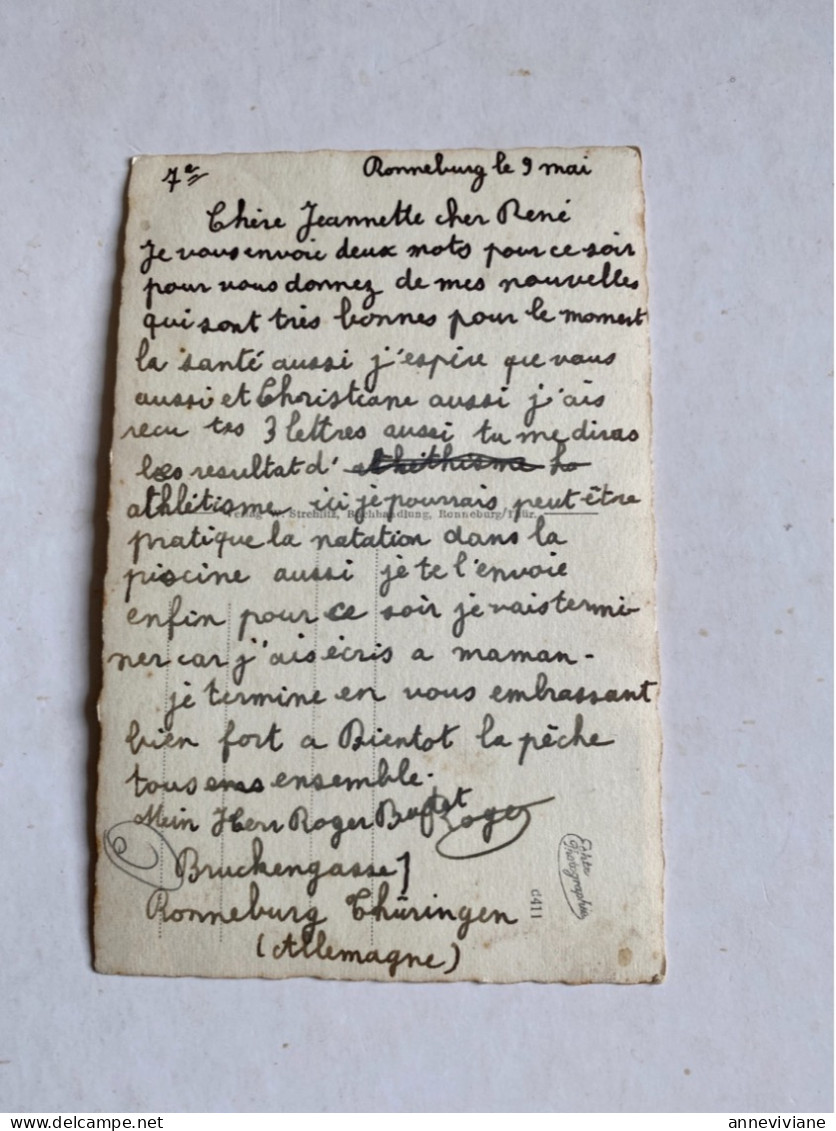 7e
Ronneburg le 9 mai
Chère Jeannette cher René
Je vous envoie deux mots pour ce soir
pour vous donnez de mes nouvelles
qui sont très bonnes pour le moment
la santé aussi j'espire que vous
aussi et Christiane aussi j'ais
recu tes 3 lettres aussi tu me diras
les resultat d'
athlétisme ici je pourrais peut être
Verlag Strehlitz, Buchhandlung, Ronneburg/Thür.
pratique la natation dans la
piscine aussi je te l'envoie
enfin pour ce soir je vais termi-
ner car j'ais écris a maman-
je termine en vous embrassant
bien fort a Bientot la pêche
tous ensemble.
Mein Herr Roger Roger
Bruckengasse
Ronneburg Thüringen
(Allemagne)
Echte Photographie